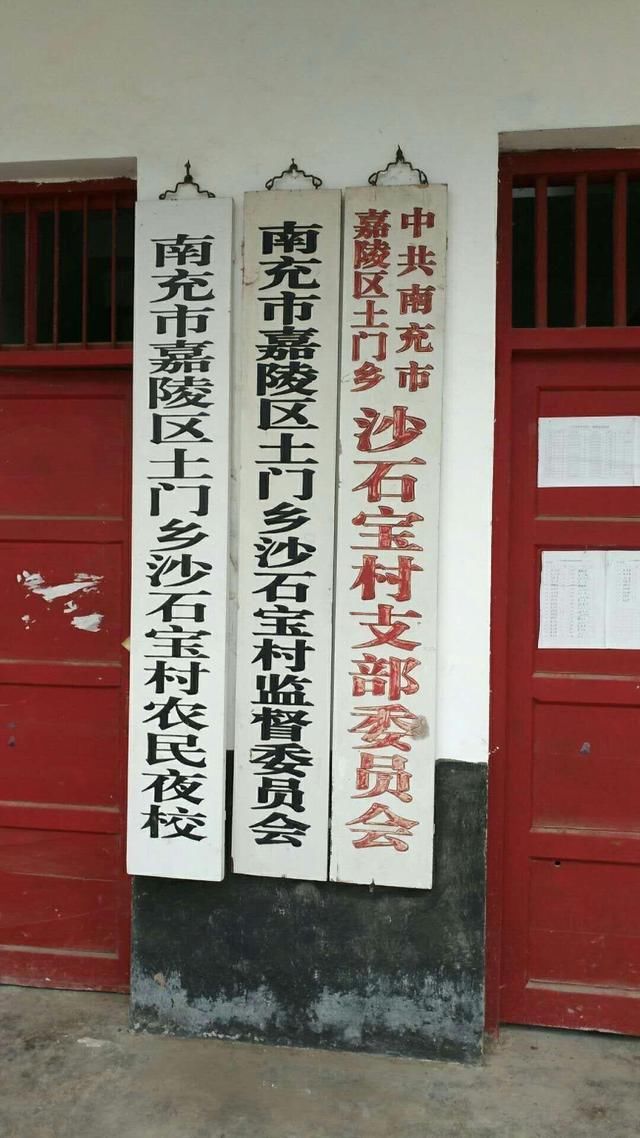 中共南充市
嘉陵区土门乡
沙石宝村支部委员会
南充市嘉陵区土门乡沙石宝村监督委员会
南充市嘉陵区土门乡沙石宝村农民夜校